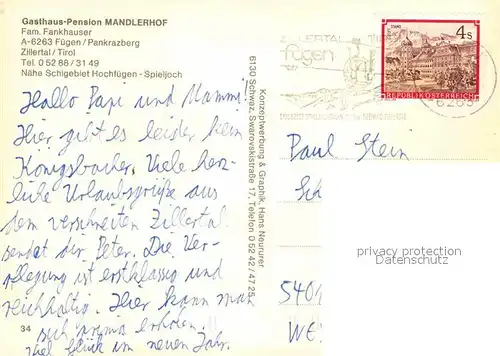 Gasthaus-Pension MANDLERHOF
Fam. Fankhauser
A-6263 Fügen / Pankrazberg
Zillertal / Tirol
Tel. 0 52 88 / 31 49
Nähe Schigebiet Hochfügen - Spieljoch
Hallo Papi und Mammi!
Hier gibt es leider kein
Königsbacher. Viele herz-
liche Urlaubsgrüße aus
dem verschneiten Zillertal
sendet dir Peter. Die Ver-
pflegung ist erstklassig und
reichhaltig. Hier kann man
sich prima erholen.
Viel Glück im neuen Jahr.
34
Konzeptwerbung & Graphik, Hans Neururer
6130 Schwaz, Swarovskistraße 17, Telefon 0 52 42 / 47 25
ZILLERTAL
fügen
4s
REPUBLIK ÖSTERREICH
6263
Paul Stein
540
WE
privacy protection
Datenschutz